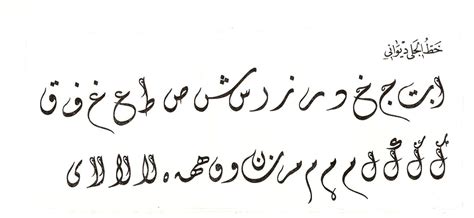 خط الجلي ديواني
ا ب ت ج خ د ر ز ر س ش ص ط ع غ ف ق
ك ك ك ل م م م م ر ن و و ه ه ه لا لا لا ي